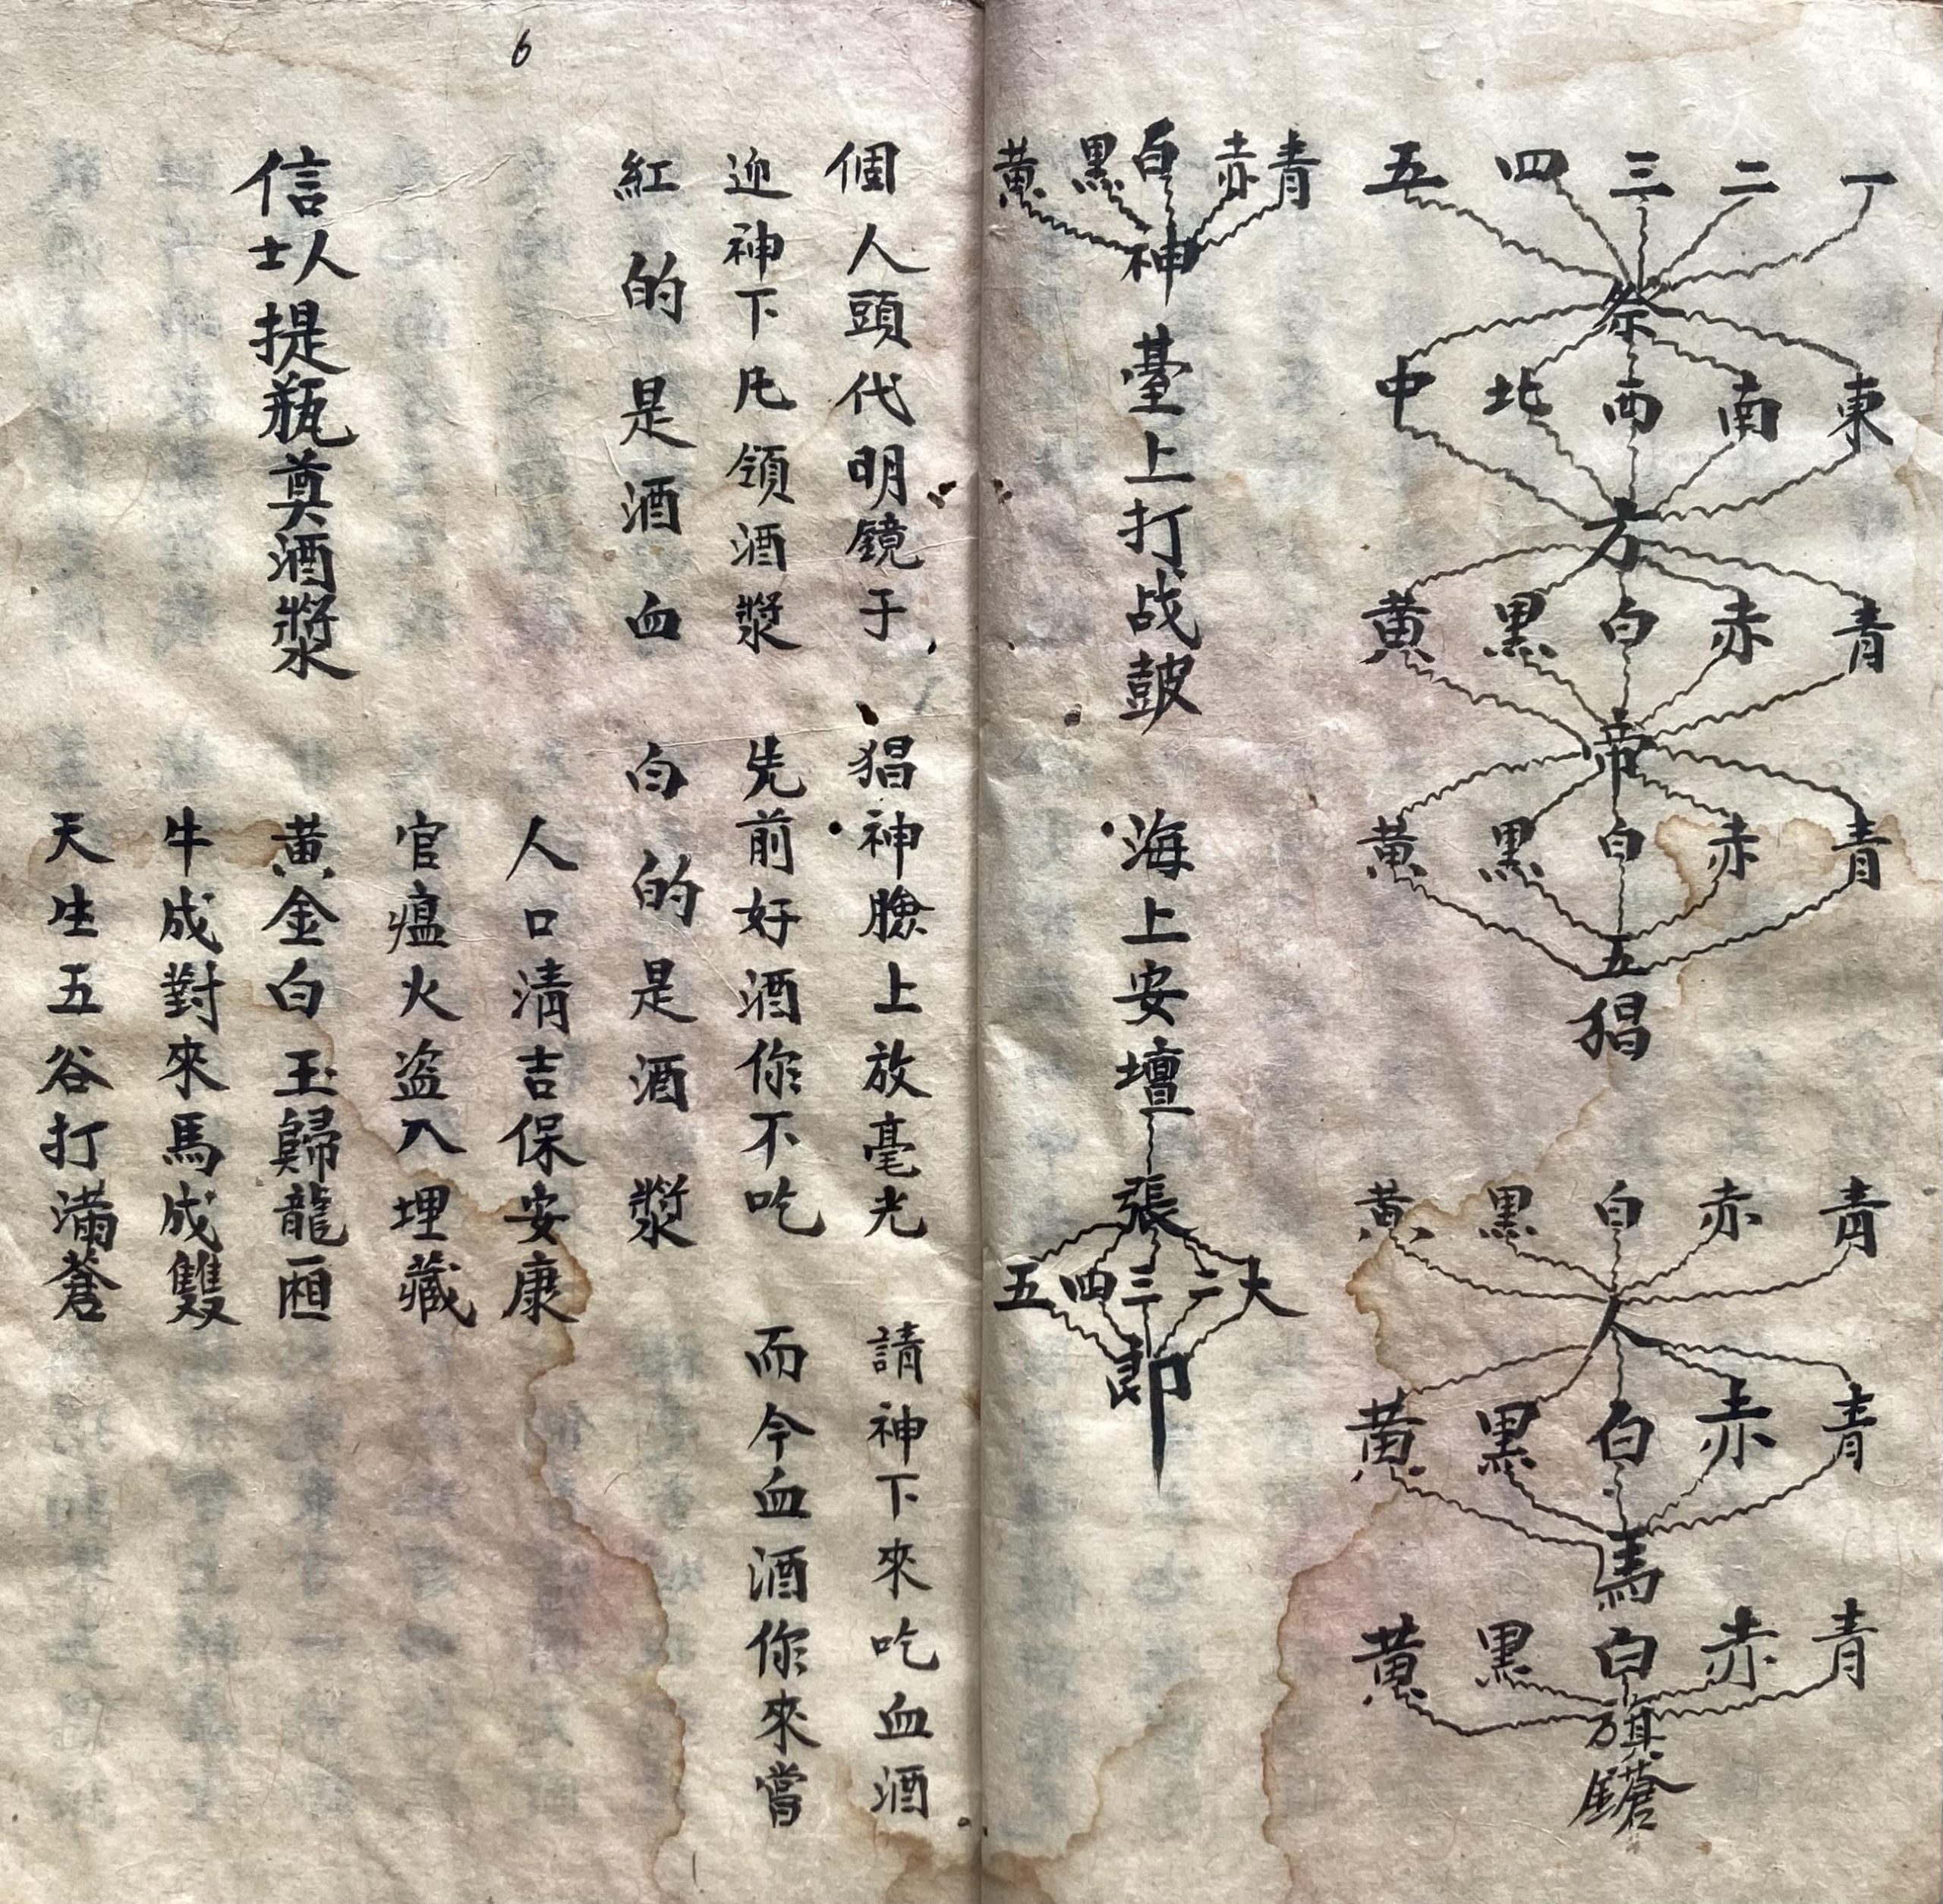 一 二 三 四 五
祭
東 南 西 北 中
方
青 赤 白 黒 黄
帝
青 赤 白 黒 黄
五
猖
青 赤 白 黒 黄
人
青 赤 白 黒 黄
馬
青 赤 白 黒 黄
旗
鎗
青 赤 白 黒 黄
神
臺上打战皷 海上安壇
張
大 二 三 四 五
郎
個人頭代明鏡于 猖神臉上放毫光 請神下來吃血酒
迎神下凡領酒漿 先前好酒你不吃 而今血酒你來嘗
紅的是酒血 白的是酒漿
人口清吉保安康
官瘟火盗入埋藏
信士人提瓶奠酒漿 黄金白玉歸龍厢
牛成對來馬成雙
天生五谷打滿蒼
6